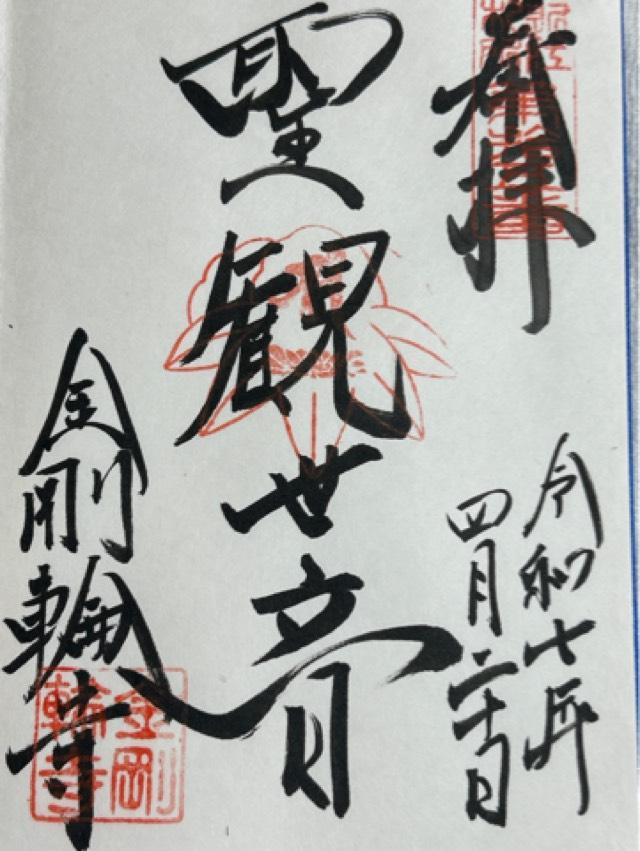 奉拝
令和七年
四月二十日
聖観世音
金剛輪寺
金剛
輪寺